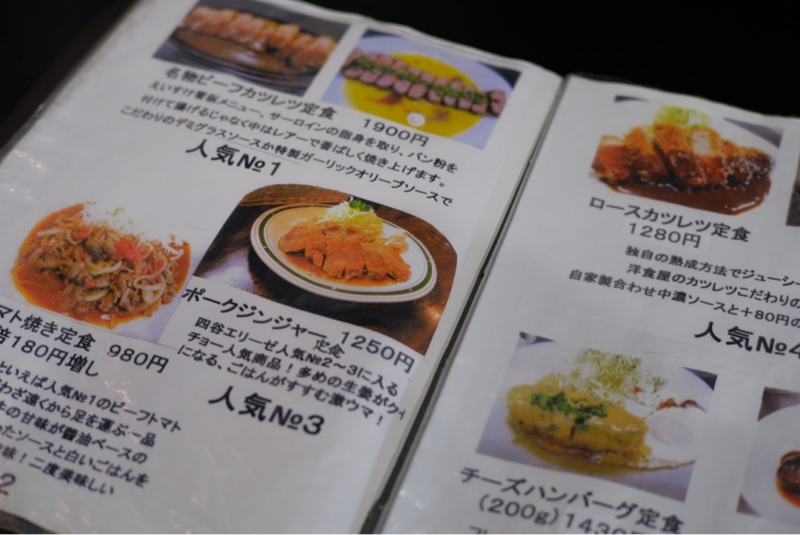 名物ビーフカツレツ定食 1900円
えいすけ看板メニュー、サーロインの脂身を取り、パン粉を
付けて揚げるじゃなく中はレアーで香ばしく焼き上げます。
こだわりのデミグラスソースか特製ガーリックオリーブソースで
人気№1
マト焼き定食 980円
180円増し
といえば人気№1のビーフトマト
わざ遠くから足を運ぶ一品
の甘味が醤油ベースの
たソースと白いごはんを
味！二度美味しい
2
ポークジンジャー定食 1250円
四谷エリーゼ人気№2～3に入る
チョー人気商品！多めの生姜がク
になる、ごはんがすすむ激ウマ！
人気№3
ロースカツレツ定食
1280円
独自の熟成方法でジューシー
洋食屋のカツレツこだわりの
自家製合わせ中濃ソースと＋80円の
人気№4
チーズハンバーグ定食
(200g)1430円